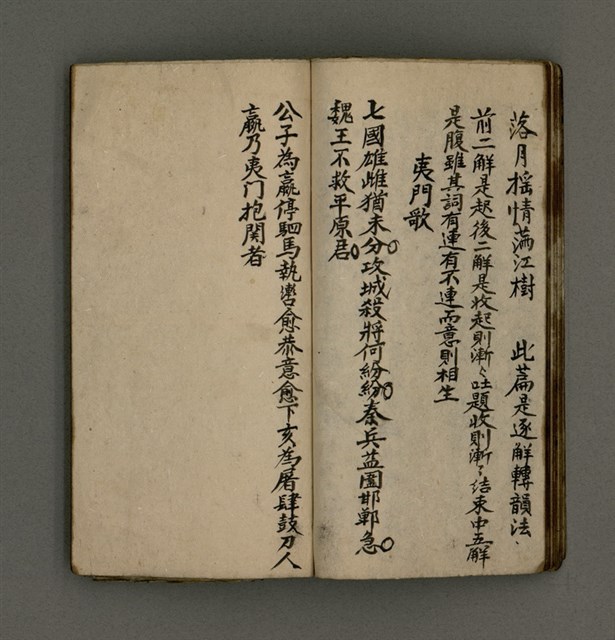 落月揺情滿江樹　此篇是逐解轉韻法、
前二解是起後二解是收起則漸々吐題收則漸々結束中五解
是腹雖其詞有連有不連而意則相生
夷門歌
七國雄雌猶未分攻城殺將何紛紛秦兵益圍邯鄲急
魏王不救平原君
公子為嬴停駟馬執轡愈恭意愈下亥為屠肆鼓刀人
嬴乃夷门抱関者